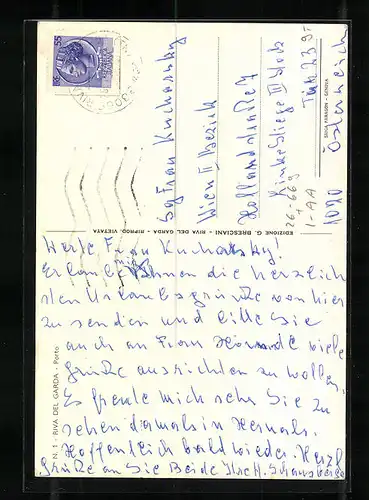 Sg Frau Kucharsky
Wien II Bezirk
Linke Stiege III Stock
Tür 23
1020 Österreich
26-669
1-AA
SIGLA FARABON - GENOVA
EDIZIONE G. BRESCIANI - RIVA DEL GARDA - RIPROD. VIETATA
N. 1 - RIVA DEL GARDA - Porto
Werte Frau Kucharsky!
Erlaube mir Ihnen die herzlich
sten Urlaubsgrüße von hier
zu senden und bitte Sie
auch an Frau viele
Grüße ausrichten zu wollen.
Es freute mich sehr Sie zu
sehen damals in Hernals.
Hoffentlich bald wieder. Herzl
Grüße an Sie Beide Ihre H.